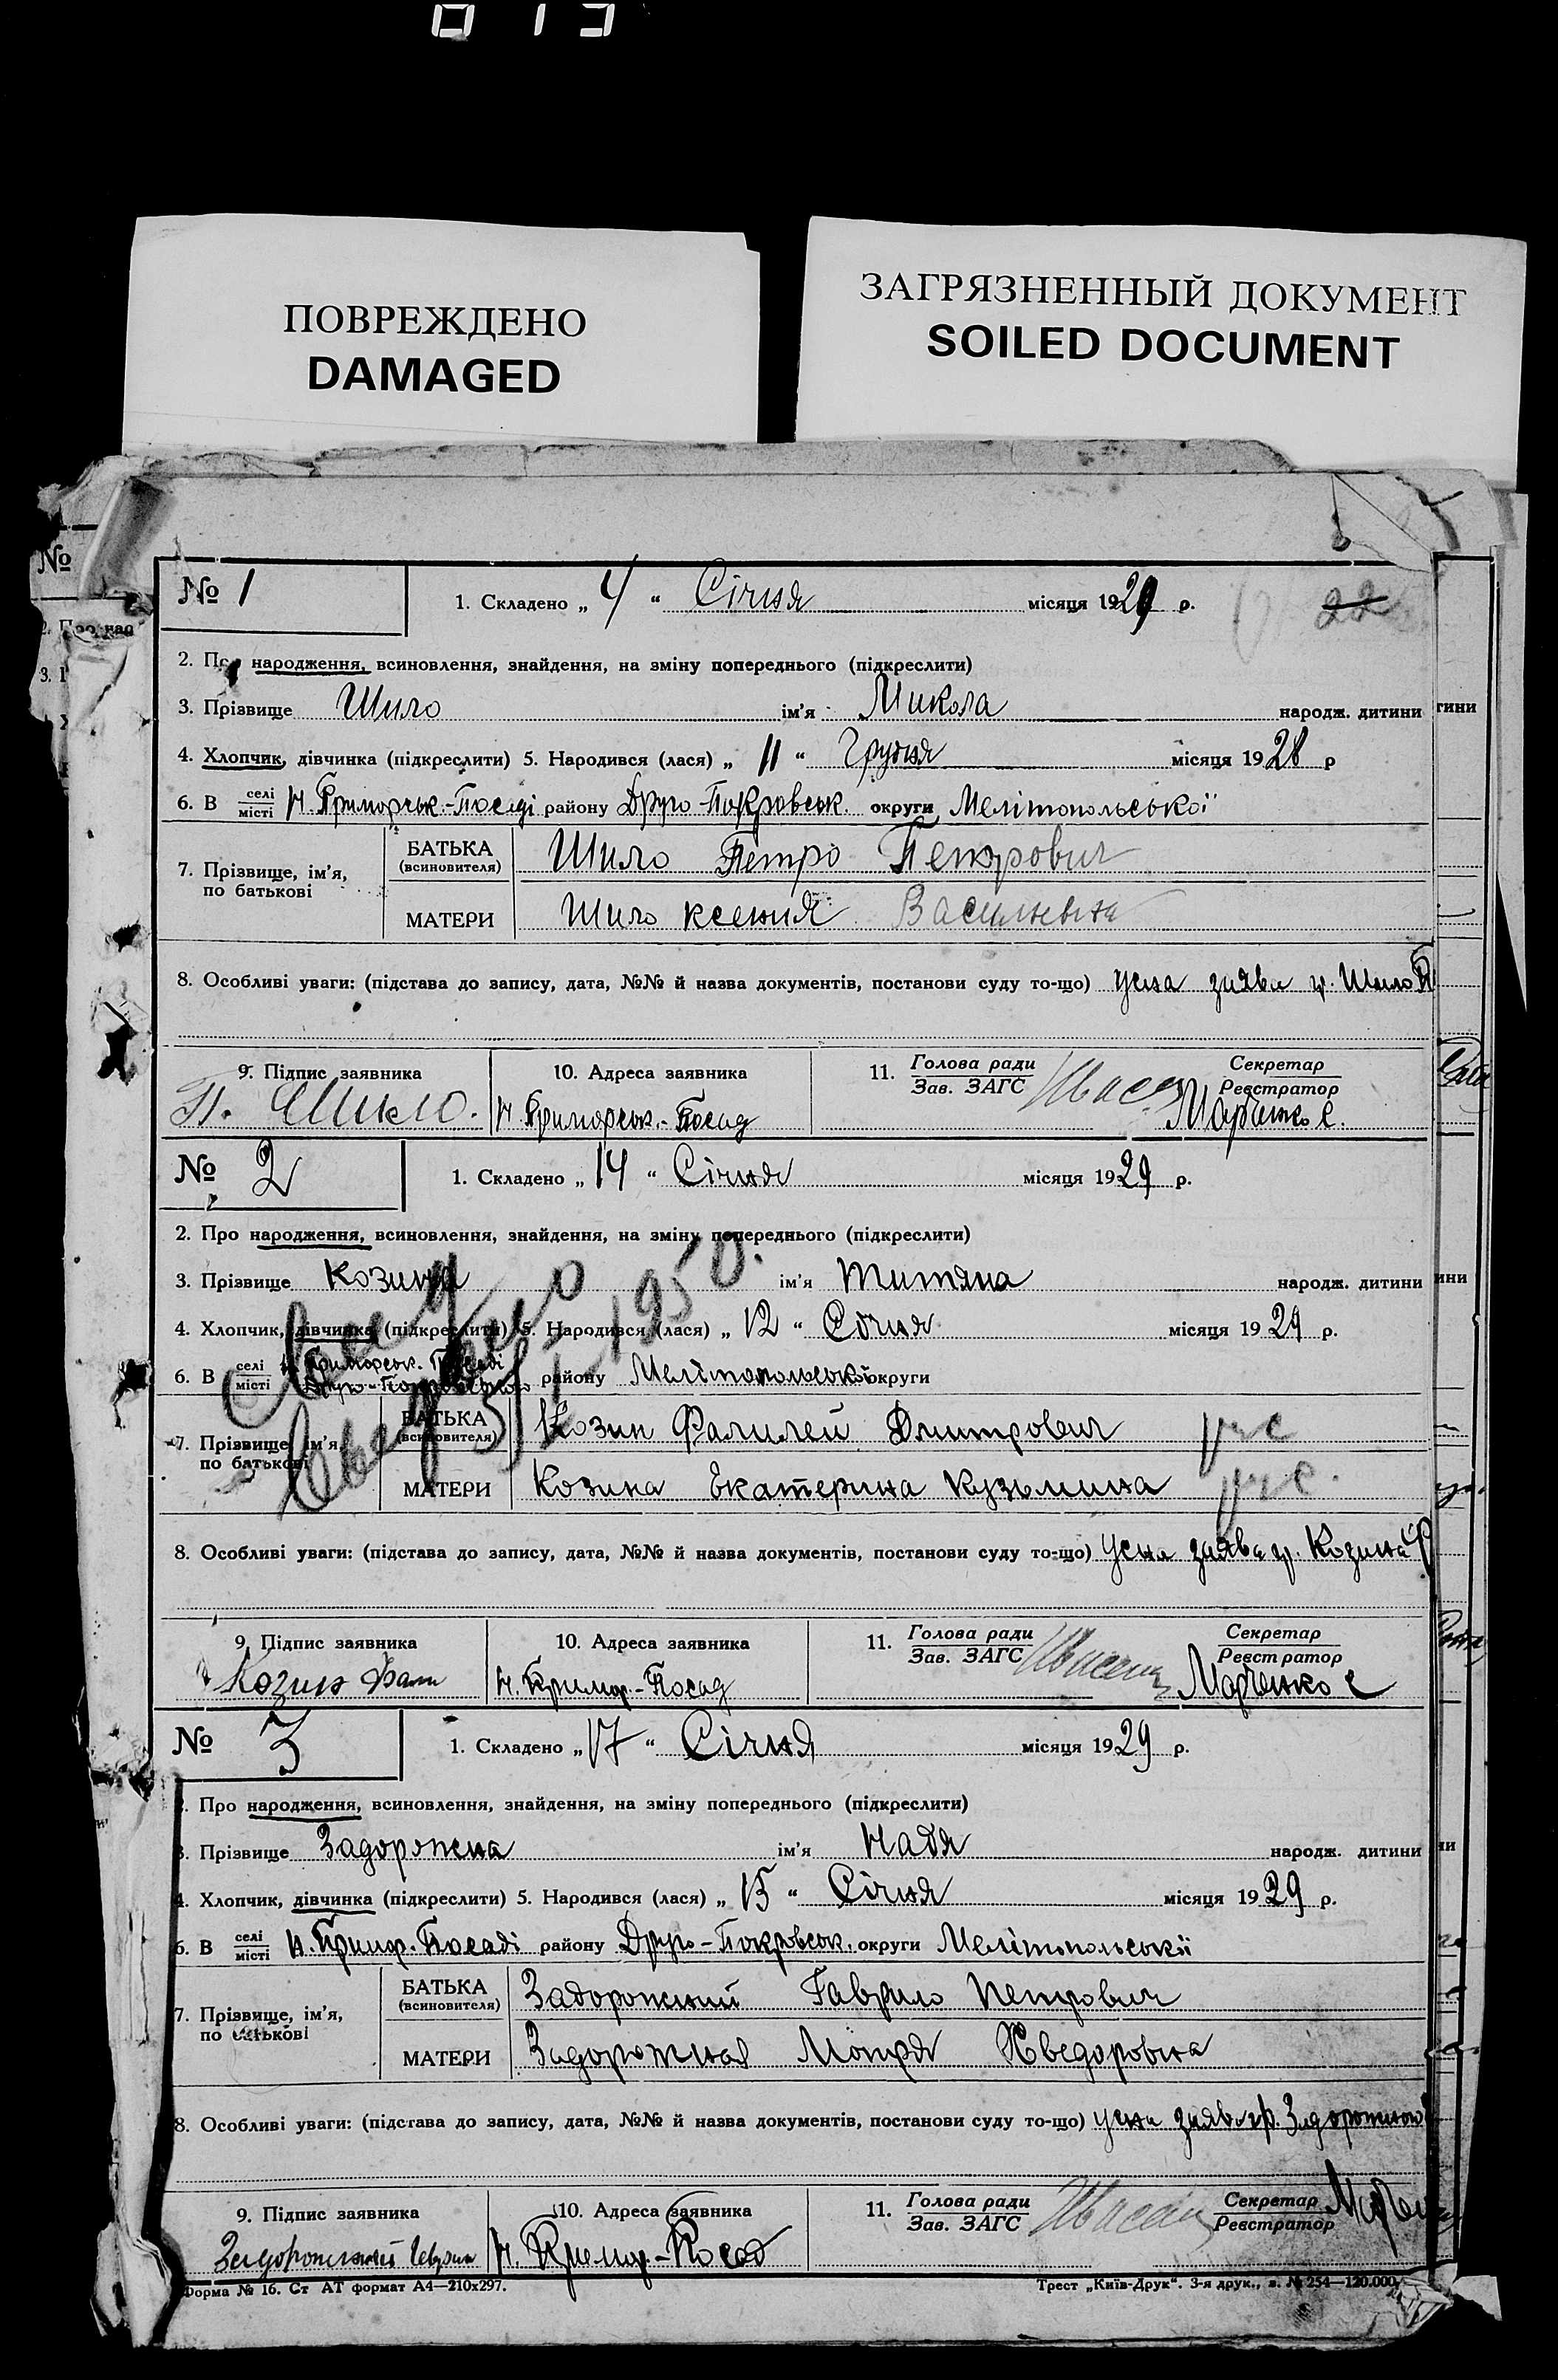 013
ПОВРЕЖДЕНО
DAMAGED
ЗАГРЯЗНЕННЫЙ ДОКУМЕНТ
SOILED DOCUMENT
№
№ 1
1. Складено „ 4 “ Січня місяця 1929 р.
22
2. Про народження, всиновлення, знайдення, на зміну попереднього (підкреслити)
3. Прізвище Шило ім'я Микола народж. дитини
4. Хлопчик, дівчинка (підкреслити) 5. Народився (лася) „ 11 “ Грудня місяця 1928 р
6. В селі місті Н. Приморськ.-Посаді району Друго-Покровськ. округи Мелітопольської
7. Прізвище, ім'я, по батькові
БАТЬКА (всиновителя) Шило Петро Петрович
МАТЕРИ Шило Ксения Васильевна
8. Особливі уваги: (підстава до запису, дата, №№ й назва документів, постанови суду то-що) усна заява гр. Шило П
9. Підпис заявника 10. Адреса заявника 11. Голова ради Зав. ЗАГС Секретар Реєстратор
П. Шило. Н. Приморськ.-Посад Марченко Є.
№ 2
1. Складено „ 14 “ Січня місяця 1929 р.
2. Про народження, всиновлення, знайдення, на зміну попереднього (підкреслити)
3. Прізвище Козина ім'я Титяна народж. дитини
1950.
4. Хлопчик, дівчинка (підкреслити) 5. Народився (лася) „ 12 “ Січня місяця 1929 р.
6. В селі місті Н. Приморськ. Посаді Друго-Покровського району Мелітопольської округи
7. Прізвище, ім'я, по батькові
БАТЬКА (всиновителя) Козин Фалилей Дмитрович рус
МАТЕРИ Козина Екатерина Кузьмина рус.
8. Особливі уваги: (підстава до запису, дата, №№ й назва документів, постанови суду то-що) усна заява гр. Козина Ф
9. Підпис заявника 10. Адреса заявника 11. Голова ради Зав. ЗАГС Секретар Реєстратор
Козин Фали Н. Примор.-Посад Марченко Є
№ 3
1. Складено „ 17 “ Січня місяця 1929 р.
2. Про народження, всиновлення, знайдення, на зміну попереднього (підкреслити)
3. Прізвище Задорожна ім'я Надя народж. дитини
4. Хлопчик, дівчинка (підкреслити) 5. Народився (лася) „ 15 “ Січня місяця 1929 р.
6. В селі місті Н. Примор. Посаді району Друго-Покровськ. округи Мелітопольської
7. Прізвище, ім'я, по батькові
БАТЬКА (всиновителя) Задорожний Гаврило Петрович
МАТЕРИ Задорожная Мотря Хведоровна
8. Особливі уваги: (підстава до запису, дата, №№ й назва документів, постанови суду то-що) усна заява гр. Задорожного
9. Підпис заявника 10. Адреса заявника 11. Голова ради Зав. ЗАГС Секретар Реєстратор
Задорожний Н. Примор.-Посад
Форма № 16. Ст АТ формат А4—210х297.
Трест „Київ-Друк“. 3-я друк., з. № 254—120.000